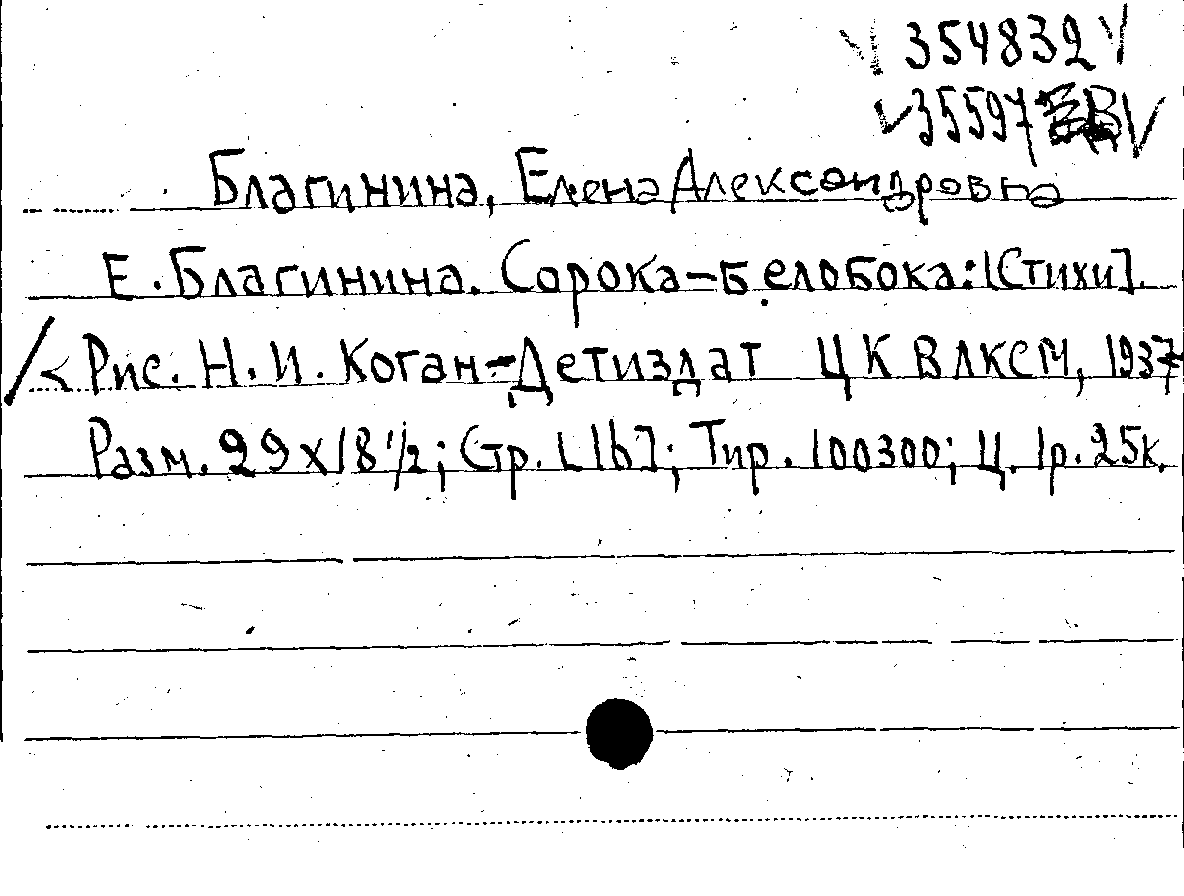 354832
Благинина, Елена Александровна
Е. Благинина. Сорока-Белобока: [Стихи].
Рис. Н. И. Коган-Детиздат ЦК ВЛКСМ, 1937
Разм. 29х18 1/2; Стр. [16]; Тир. 100300; Ц. 1р. 25к.